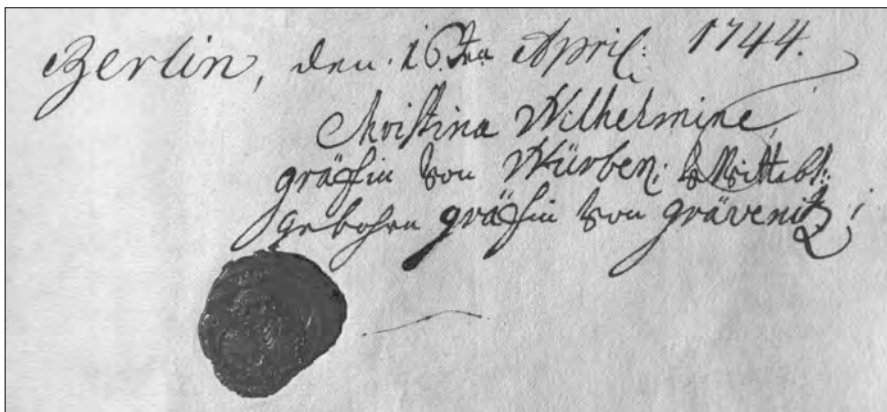 Berlin, den. 16ten April: 1744.
Christina Wilhelmine,
gräffin von Würben;
gebohrn gräffin von grävenitz;